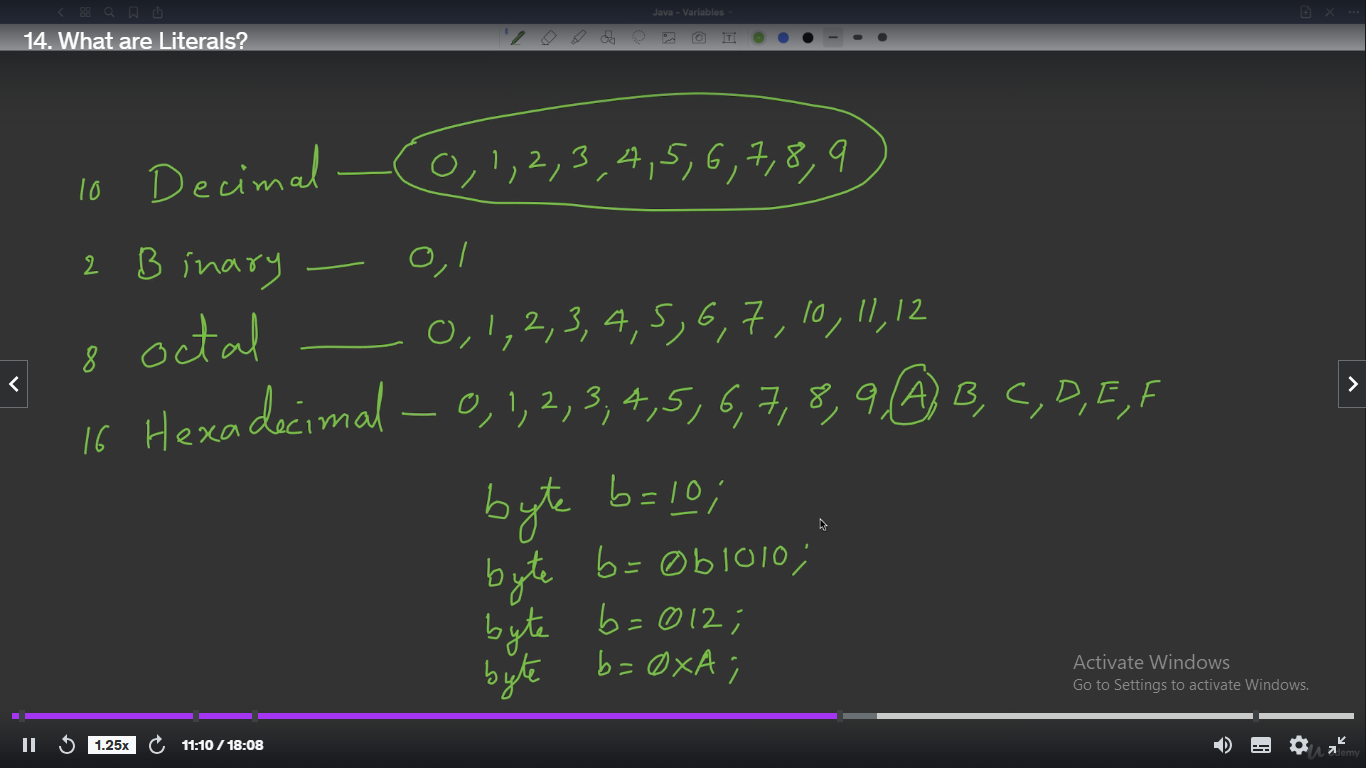 Java - Variables
14. What are Literals?
10 Decimal — 0, 1, 2, 3, 4, 5, 6, 7, 8, 9
2 Binary — 0, 1
8 octal — 0, 1, 2, 3, 4, 5, 6, 7, 10, 11, 12
16 Hexadecimal — 0, 1, 2, 3, 4, 5, 6, 7, 8, 9, A, B, C, D, E, F
byte b = 10;
byte b = 0b1010;
byte b = 012;
byte b = 0xA;
Activate Windows
Go to Settings to activate Windows.
1.25x 11:10 / 18:08